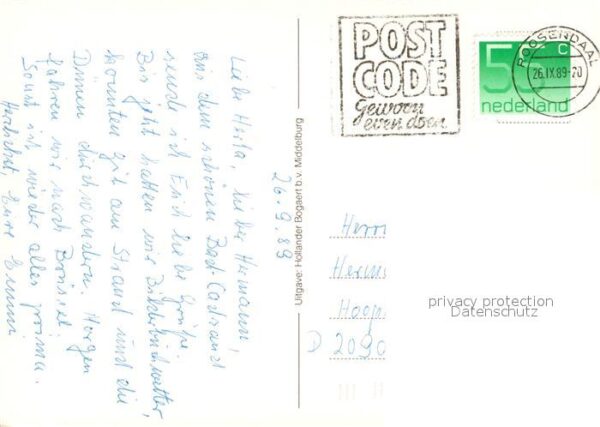 Liebe Herta, lieber Hermann,
aus dem schönen Bad Cadzand
sende ich Euch liebe Grüße.
Bis jetzt hatten wir Bilderbuchwetter,
konnten gut am Strand und die
Dünen durchwandern. Morgen
fahren wir nach Brüssel.
Sonst ist wieder alles prima.
Herzlichst, Eure Emmi
26.9.89
Uitgave: Hollander Bogaert b.v. Middelburg
POST
CODE
Gewoon
even doen
50 c
nederland
ROOSENDAAL
26.IX.89-20
Herrn
Herm
Hoop
D 2090
privacy protection
Datenschutz